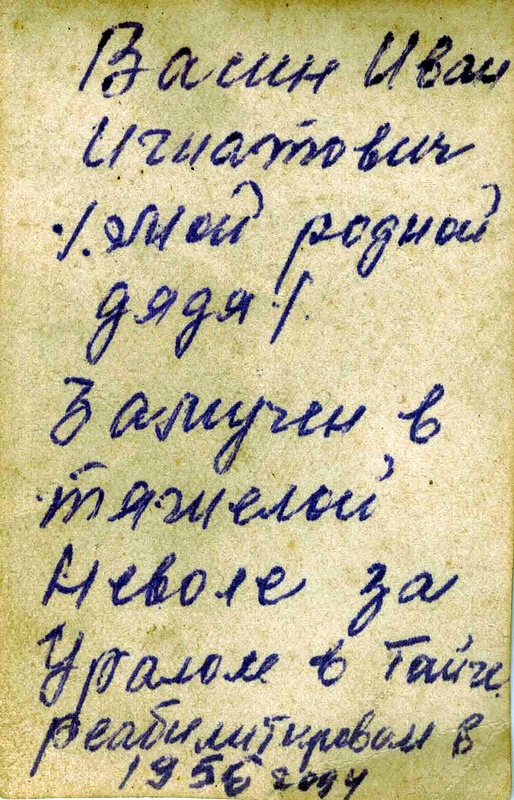 Васин Иван
Игнатович
·/. мой родной
дядя ·/.
Замучен в
тяжелой
Неволе за
Уралом в Тайге
реабилитирован в
1956 году